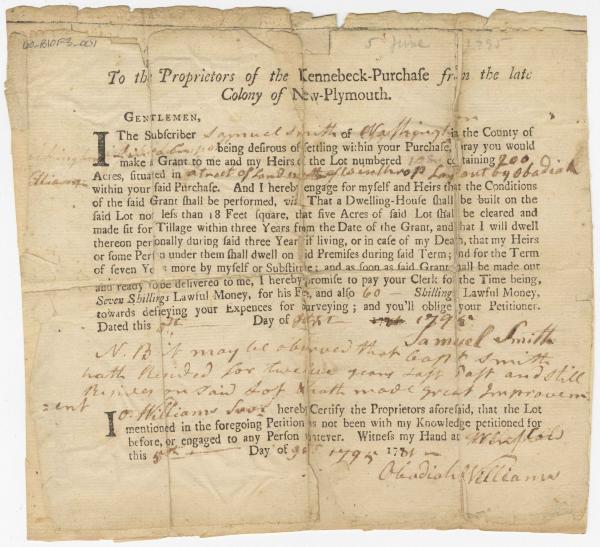 5 June 1795
To the Proprietors of the Kennebeck-Purchase from the late
Colony of New-Plymouth.
GENTLEMEN,
I The Subscriber Samuel Smith of Washington in the County of
Lincoln being desirous of settling within your Purchase, pray you would
make a Grant to me and my Heirs of the Lot numbered containing 200
Acres, situated in a tract of Land of Winthrop Lay out by Obadiah
Williams within your said Purchase. And I hereby engage for myself and Heirs that the Conditions
of the said Grant shall be performed, viz. That a Dwelling-House shall be built on the
said Lot not less than 18 Feet square, that five Acres of said Lot shall be cleared and
made fit for Tillage within three Years from the Date of the Grant, and that I will dwell
thereon personally during said three Years if living, or in case of my Death, that my Heirs
or some Person under them shall dwell on said Premises during said Term; and for the Term
of seven Years more by myself or Substitute; and as soon as said Grant shall be made out
and ready to be delivered to me, I hereby promise to pay your Clerk for the Time being,
Seven Shillings Lawful Money, for his Fee, and also 60 Shillings Lawful Money,
towards defreying your Expences for surveying; and you'll oblige your Petitioner.
Dated this 5th Day of 1795
Samuel Smith
N. B it may be observed that Capt Smith
hath Resided for twelve years Last Past and Still
Resides on said Lot & hath made great Improvem
ent
I O. Williams Svor hereby Certify the Proprietors aforesaid, that the Lot
mentioned in the foregoing Petition is not been with my Knowledge petitioned for
before, or engaged to any Person whatever. Witness my Hand at Winslow
this 5th Day of 1795 178
Obadiah Williams